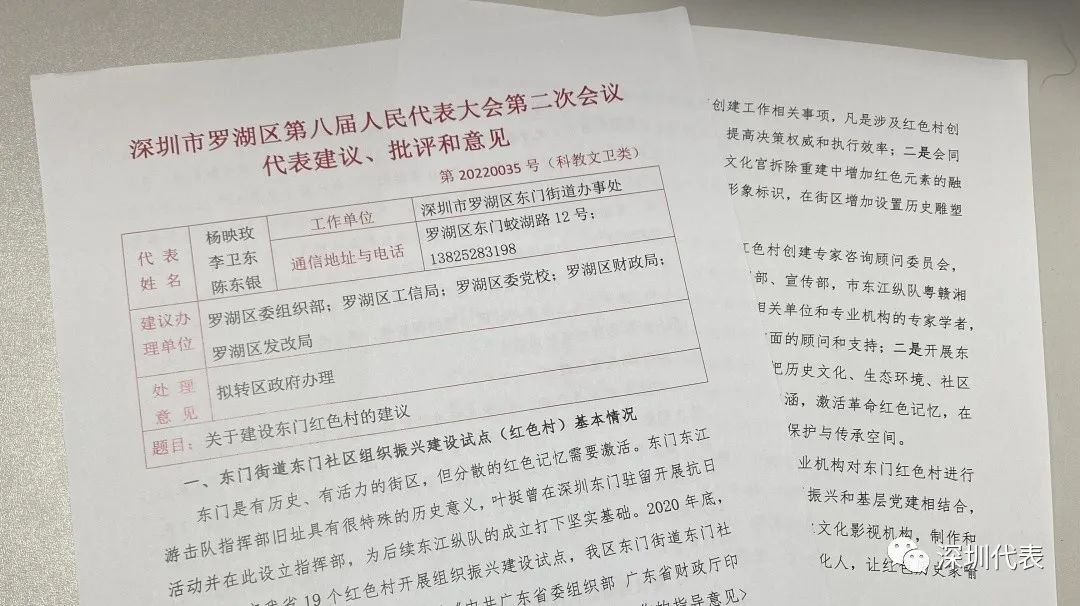 深圳市罗湖区第八届人民代表大会第二次会议
代表建议、批评和意见
第 20220035 号（科教文卫类）
代 表
姓 名
杨映玫
李卫东
陈东银
工作单位
深圳市罗湖区东门街道办事处
通信地址与电话
罗湖区东门蛟湖路 12 号；
13825283198
建议办
理单位
罗湖区委组织部；罗湖区工信局；罗湖区委党校；罗湖区财政局；
罗湖区发改局
处 理
意 见
拟转区政府办理
题目：关于建设东门红色村的建议
一、东门街道东门社区组织振兴建设试点（红色村）基本情况
东门是有历史、有活力的街区，但分散的红色记忆需要激活。东门东江
游击队指挥部旧址具有很特殊的历史意义，叶挺曾在深圳东门驻留开展抗日
活动并在此设立指挥部，为后续东江纵队的成立打下坚实基础。2020 年底，
我省 19 个红色村开展组织振兴建设试点，我区东门街道东门社
《中共广东省委组织部 广东省财政厅印
的指导意见》
创建工作相关事项，凡是涉及红色村创
提高决策权威和执行效率；二是会同
文化宫拆除重建中增加红色元素的融
形象标识，在街区增加设置历史雕塑
红色村创建专家咨询顾问委员会，
部、宣传部，市东江纵队粤赣湘
相关单位和专业机构的专家学者，
面的顾问和支持；二是开展东
把历史文化、生态环境、社区
涵，激活革命红色记忆，在
保护与传承空间。
业机构对东门红色村进行
振兴和基层党建相结合，
文化影视机构，制作和
化人，让红色历史家喻
深圳代表